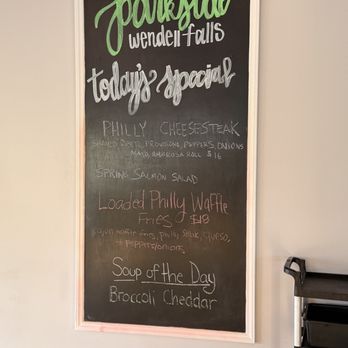 Parkside
wendell falls
today's special
PHILLY CHEESESTEAK
SHAVED BEEF, PROVOLONE, PEPPERS, ONIONS
MAYO, AMOROSA ROLL $16
SPRING SALMON SALAD
Loaded Philly Waffle
Fries $18
waffle fries, philly steak, queso,
+ peppers/onions
Soup of the Day
Broccoli Cheddar